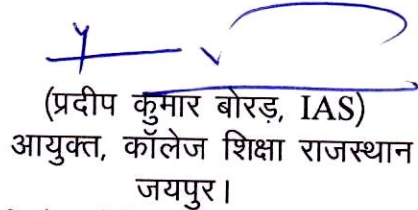 (प्रदीप कुमार बोरड़, IAS)
आयुक्त, कॉलेज शिक्षा राजस्थान
जयपुर।